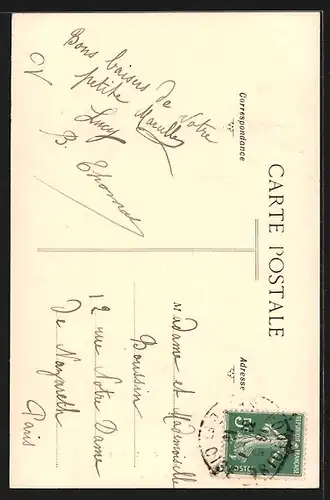 CARTE POSTALE
Correspondance
Adresse
Bons baisers de Votre
petite Marcelle
Lucy
B. Thomas
Madame et Mademoiselle
Boussin
12 rue Notre Dame
De Nazareth
Paris
REPUBLIQUE FRANÇAISE
5c
POSTES